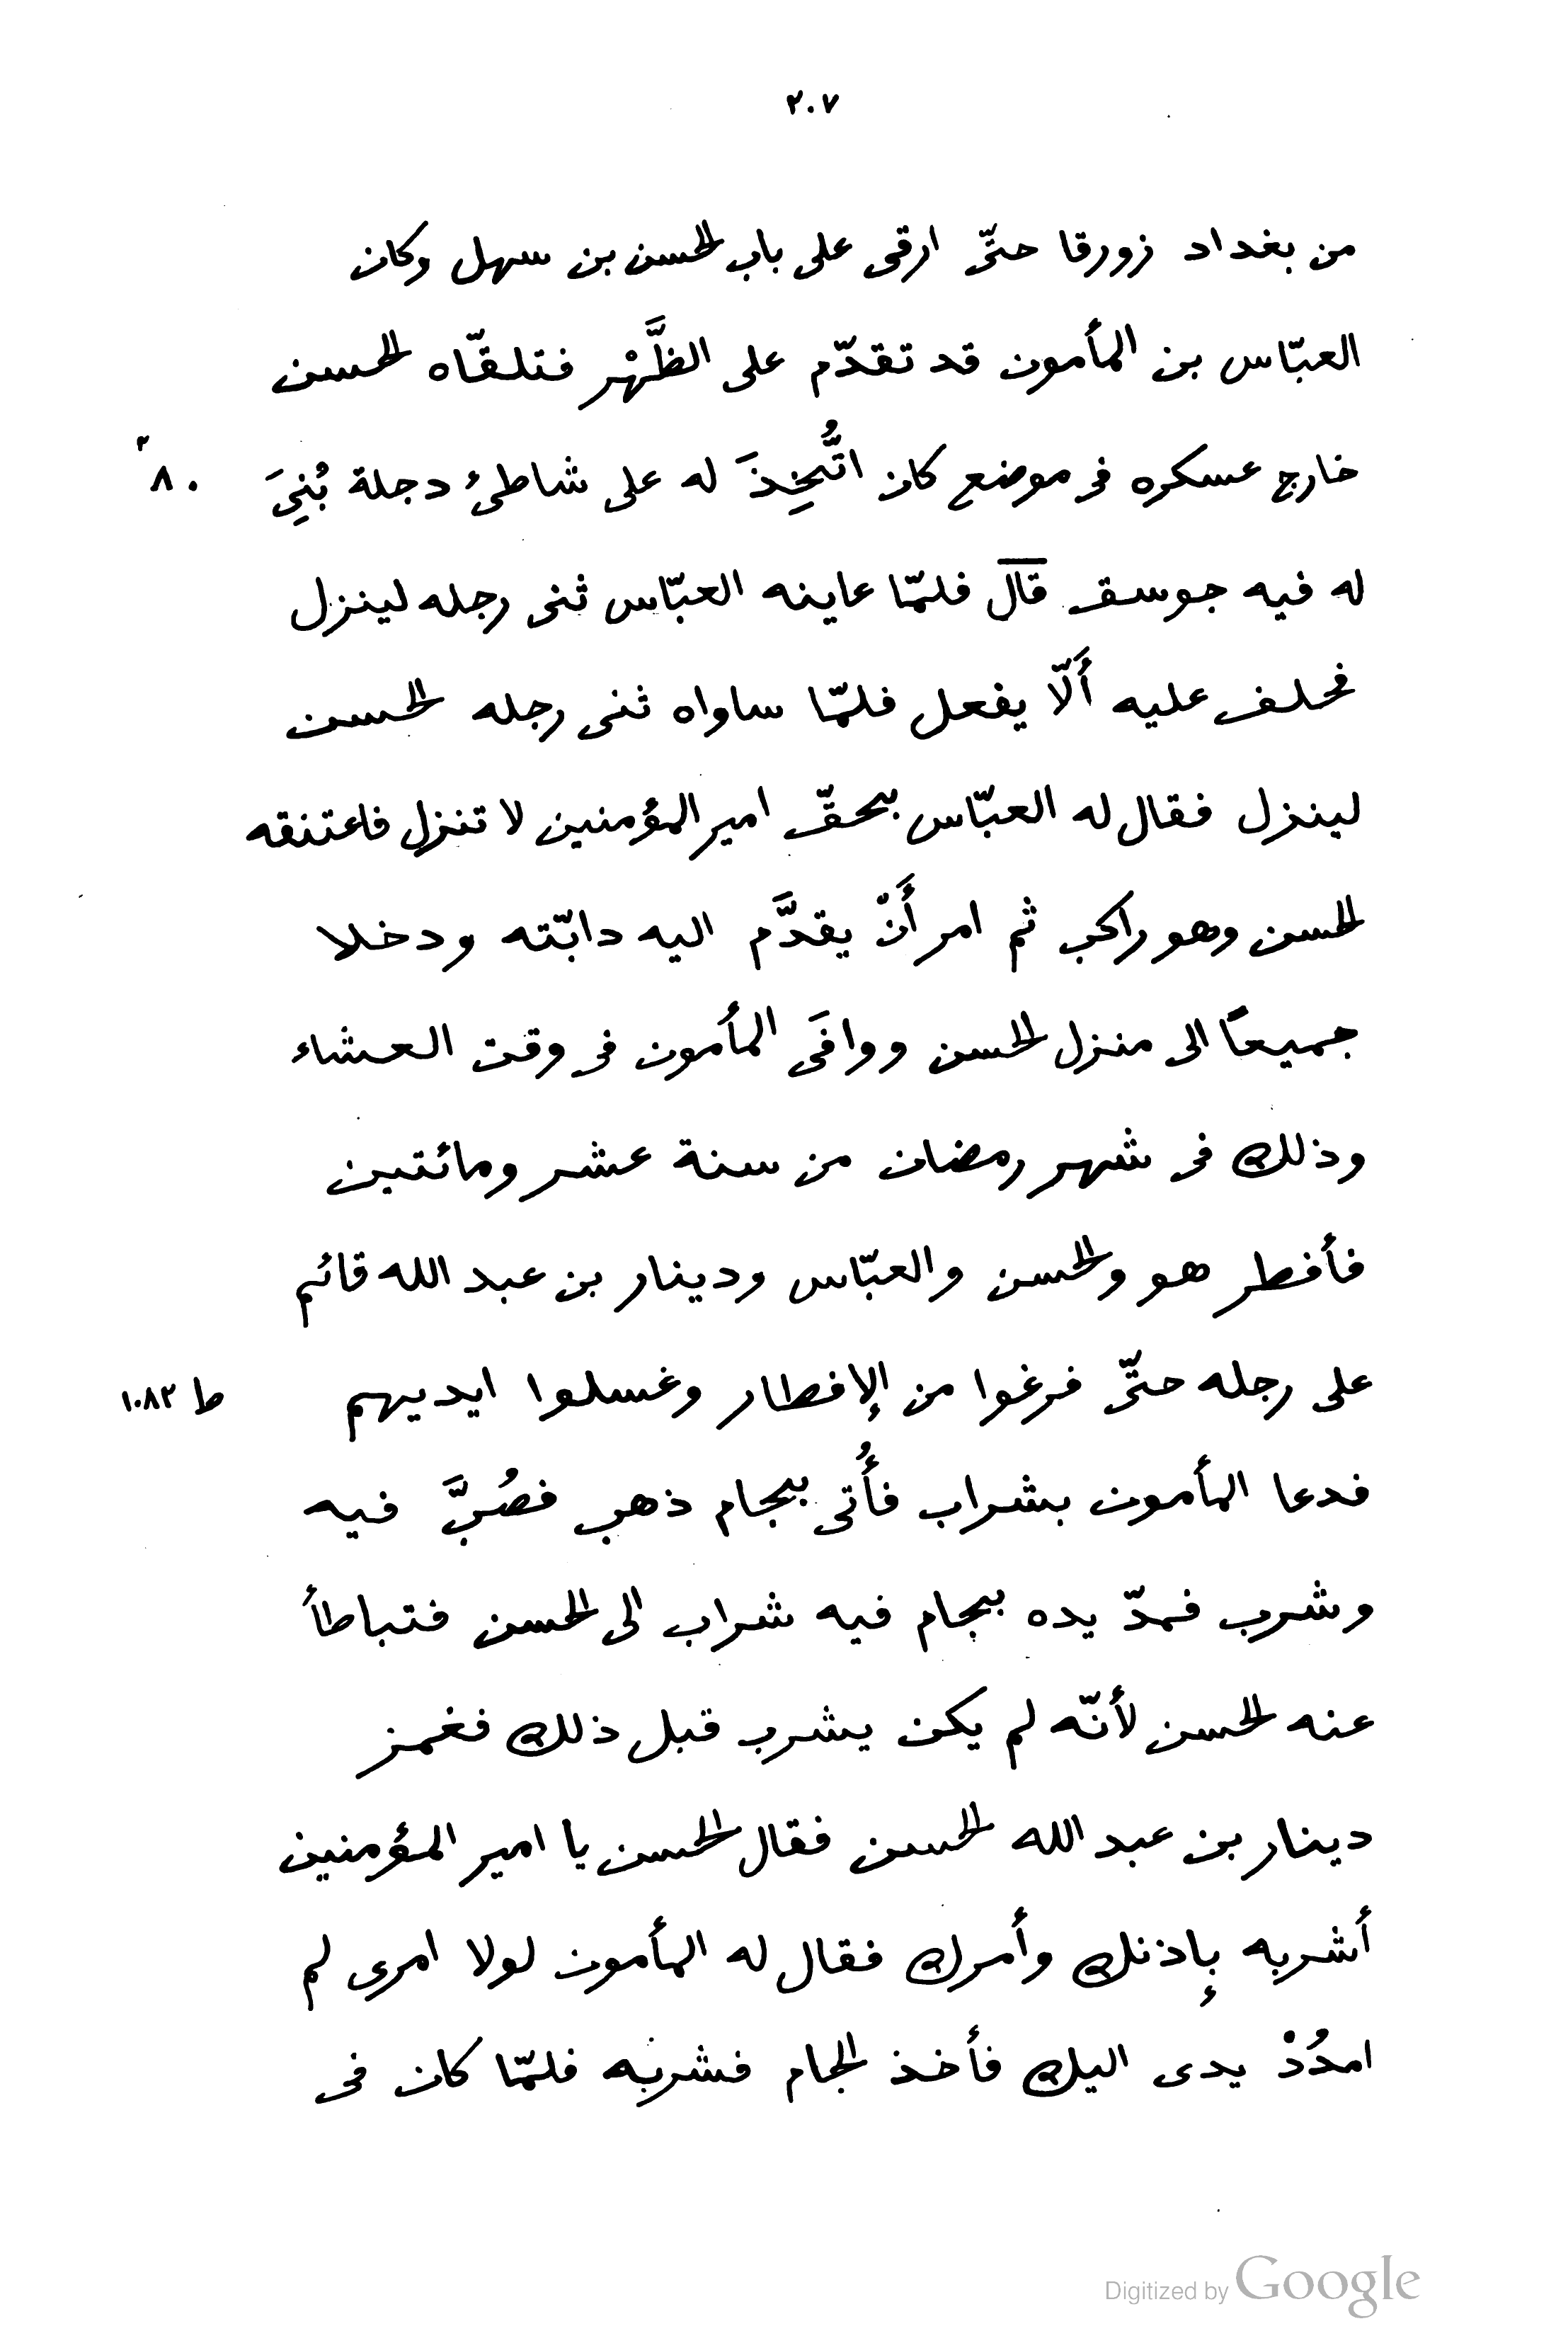 ٢٠٧
من بغداد زورقا حتّى ارقى على باب الحسن بن سهل وكان
العبّاس بن المأمون قد تقدّم على الظَّهْر فتلقّاه الحسن
خارج عسكره فى موضع كان اتُّخِذَ له على شاطئ دجلة بُنِىَ
٨٠ ٢
له فيه جوسق قال فلمّا عاينه العبّاس ثنى رجله لينزل
فحلف عليه أَلّا يفعل فلمّا ساواه ثنى رجله الحسن
لينزل فقال له العبّاس بحقّ امير المؤمنين لا تنزل فاعتنقه
الحسن وهو راكب ثم امر أَنْ يقدَّم اليه دابّته ودخلا
جميعًا الى منزل الحسن ووافَى المأمون فى وقت العشاء
وذلك فى شهر رمضان من سنة عشر ومائتين
فأفطر هو والحسن والعبّاس ودينار بن عبد الله قائم
على رجله حتّى فرغوا من الإفطار وغسلوا ايديهم
ط ١٠٨٢
فدعا المأمون بشراب فأُتى بجام ذهب فصُبَّ فيه
وشرب فمدّ يده بجام فيه شراب الى الحسن فتباطأ
عنه الحسن لأنّه لم يكن يشرب قبل ذلك فغمز
دينار بن عبد الله الحسن فقال الحسن يا امير المؤمنين
أشربه بإذنك وأمرك فقال له المأمون لولا امرى لم
امدُدْ يدى اليك فأخذ الجام فشربه فلمّا كان فى
Digitized by Google